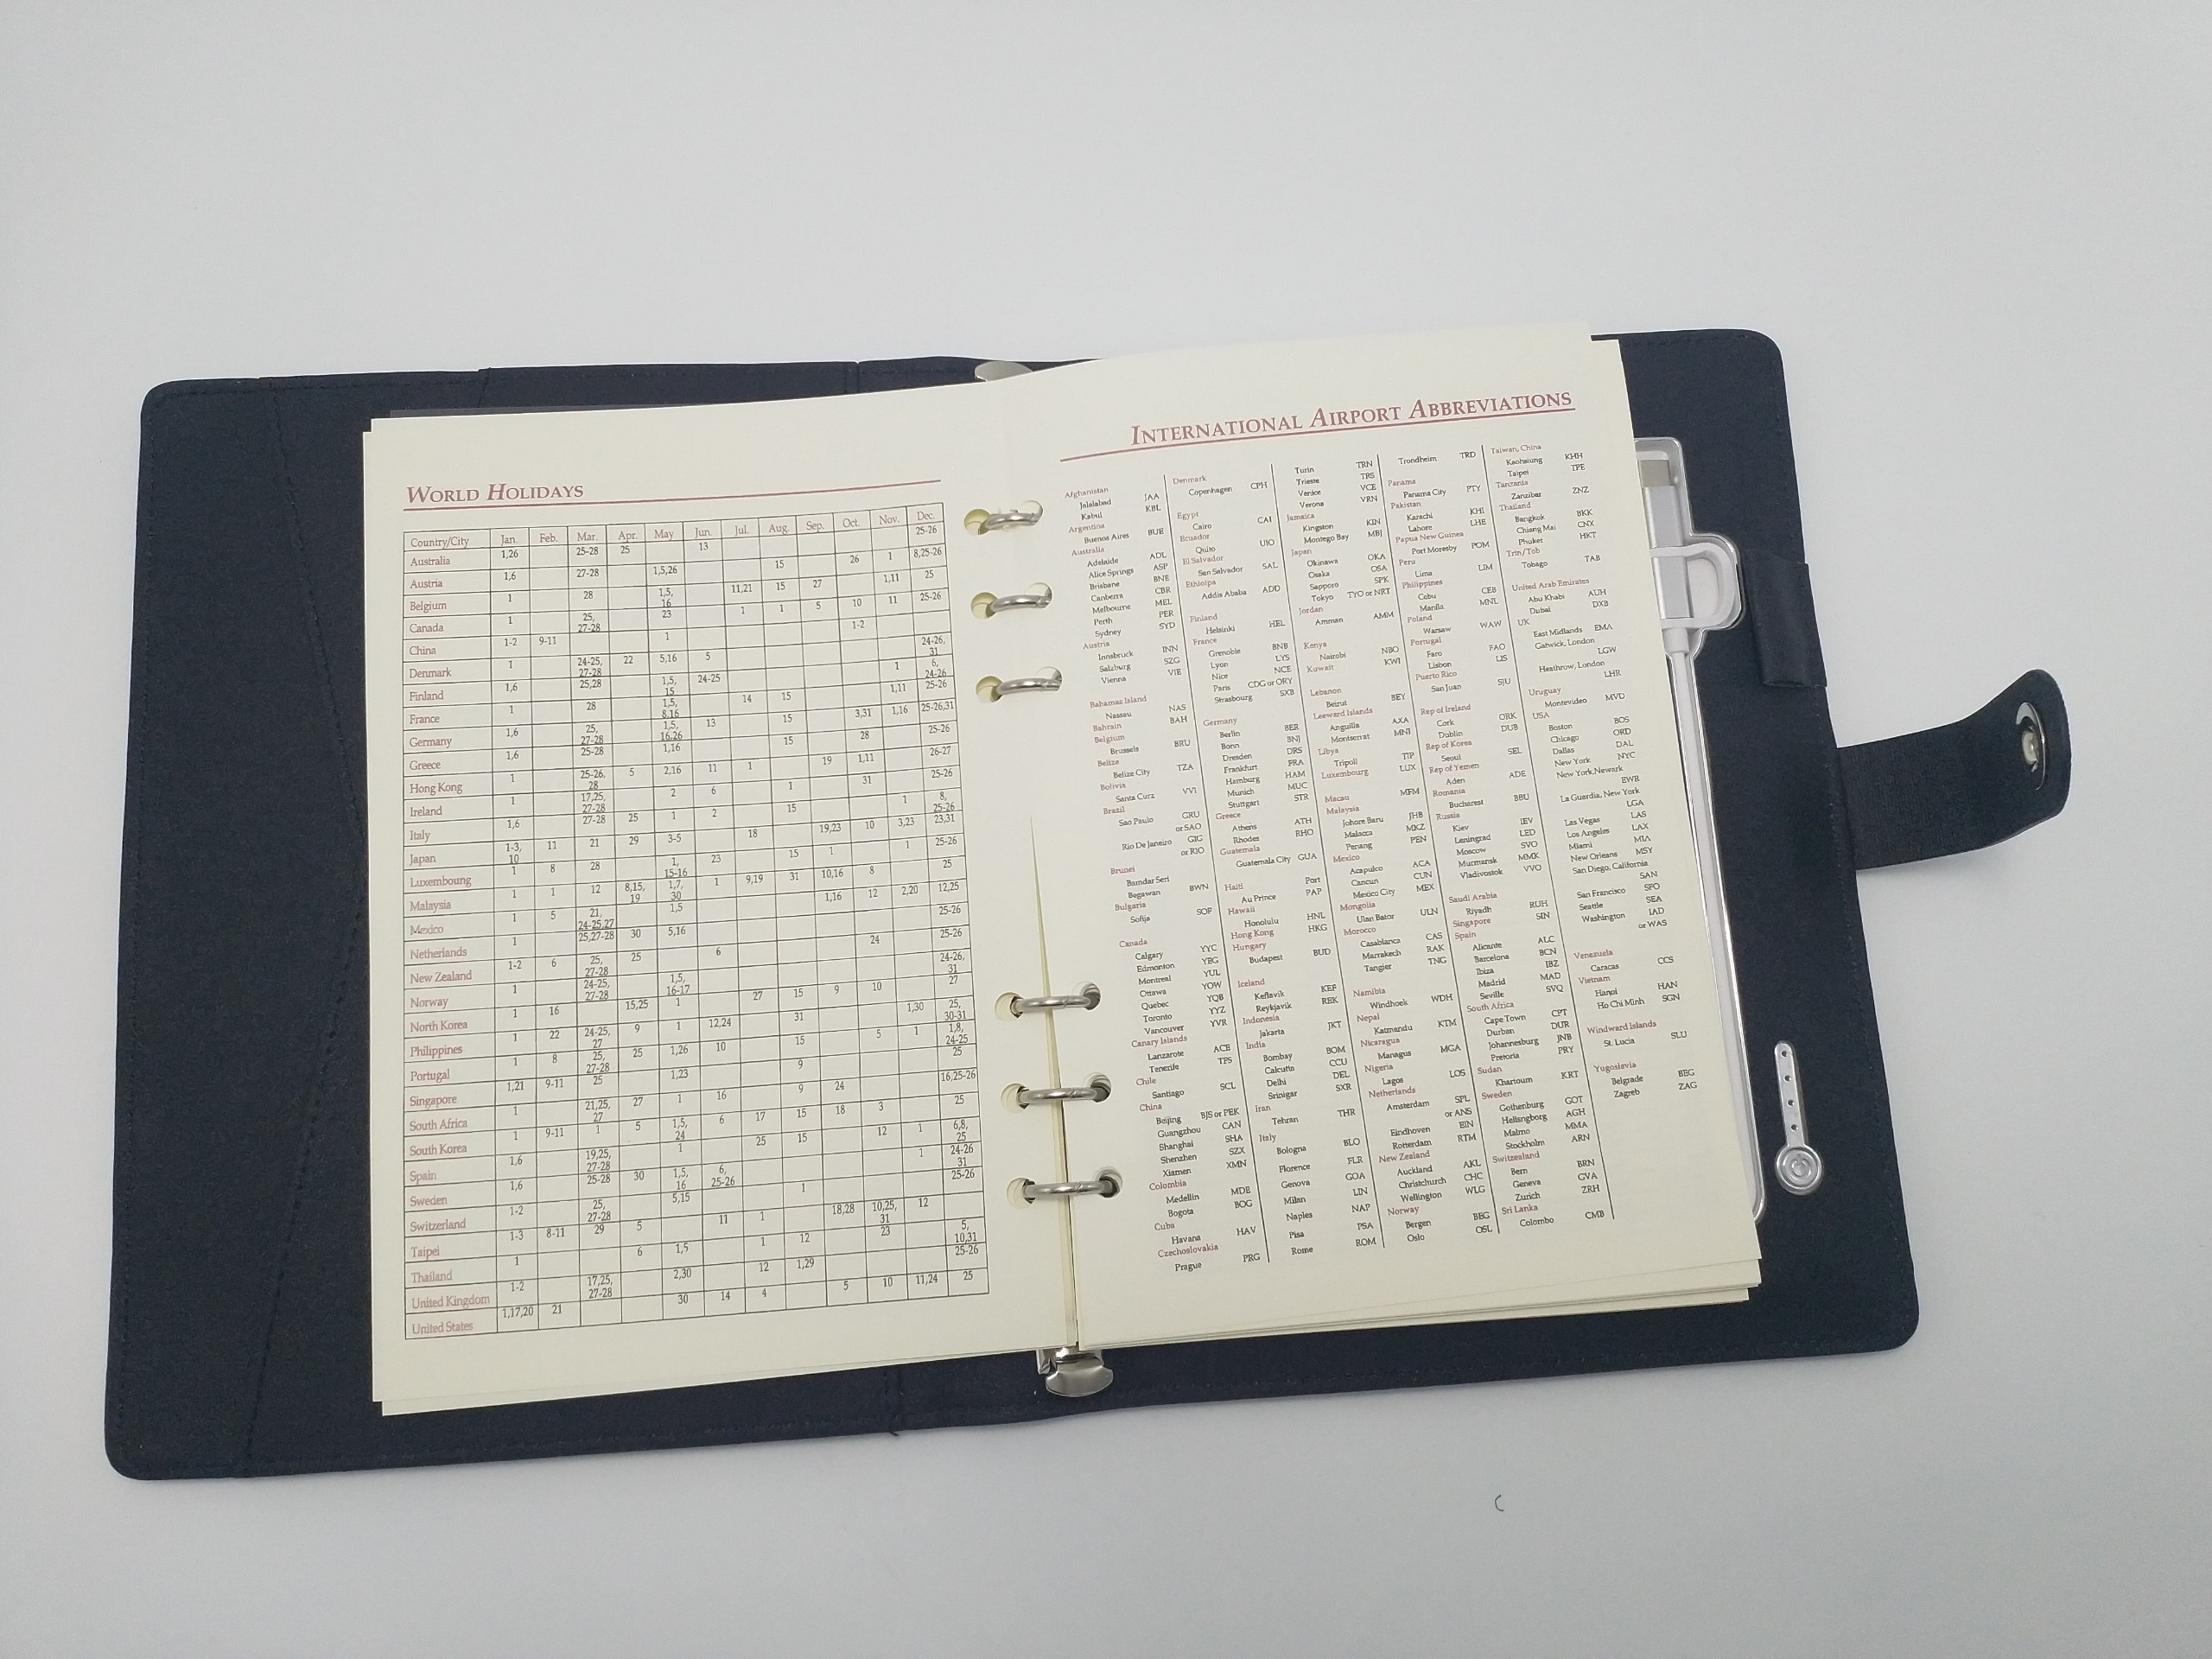 WORLD HOLIDAYS
Country/City Jan. Feb. Mar. Apr. May Jun. Jul. Aug. Sep. Oct. Nov. Dec.
Australia 1,26 25-28 25 13 25-26
Austria 1,6 27-28 1,5,26 15 26 1 8,25-26
Belgium 1 28 1,5, 16 11,21 15 27 1,11 25
Canada 1 25, 27-28 23 1 1 5 10 11 25-26
China 1-2 9-11 1 1-2
Denmark 1 24-25, 27-28 22 5,16 5 24-26, 31
Finland 1,6 25,28 1,5, 15 24-25 1 6, 24-26
France 1 28 1,5, 8,16 14 15 1,11 25-26
Germany 1,6 25, 27-28 1,5, 16,26 13 15 3,31 1,16 25-26,31
Greece 1,6 25-28 1,16 15 28 25-26
Hong Kong 1 25-26, 28 5 2,16 11 1 19 1,11 26-27
Ireland 1 17,25, 27-28 2 6 1 31 25-26
Italy 1,6 27-28 25 1 2 15 1 8, 25-26
Japan 1-3, 10 11 21 29 3-5 18 19,23 10 3,23 23,31
Luxemboung 1 8 28 1, 15-16 23 15 1 1 25-26
Malaysia 1 1 12 8,15, 19 1,7, 30 1 9,19 31 10,16 8 25
Mexico 1 5 21, 24-25,27 1,5 1,16 12 2,20 12,25
Netherlands 1 25,27-28 30 5,16 25-26
New Zealand 1-2 6 25, 27-28 25 6 24 25-26
Norway 1 24-25, 27-28 1,5, 16-17 24-26, 31
North Korea 1 16 15,25 1 27 15 9 10 27
Philippines 1 22 24-25, 27 9 1 12,24 31 1,30 25, 30-31
Portugal 1 8 25, 27-28 25 1,26 10 15 5 1 1,8, 24-25
Singapore 1,21 9-11 25 1,23 9 25
South Africa 1 21,25, 27 27 1 16 9 24 16,25-26
South Korea 1 9-11 1 5 1,5, 24 6 17 15 18 3 25
Spain 1,6 19,25, 27-28 1 25 15 12 1 6,8, 25
Sweden 1,6 25-28 30 1,5, 16 6, 25-26 1 24-26 31
Switzerland 1-2 25, 27-28 5,15 1 25-26
Taipei 1-3 8-11 29 5 11 1 18,28 10,25, 31 12
Thailand 1 6 1,5 1 12 23 5, 10,31
United Kingdom 1-2 17,25, 27-28 2,30 12 1,29 25-26
United States 1,17,20 21 30 14 4 5 10 11,24 25
INTERNATIONAL AIRPORT ABBREVIATIONS
Afghanistan
Jalalabad JAA
Kabul KBL
Argentina
Buenos Aires BUE
Australia
Adelaide ADL
Alice Springs ASP
Brisbane BNE
Canberra CBR
Melbourne MEL
Perth PER
Sydney SYD
Austria
Innsbruck INN
Salzburg SZG
Vienna VIE
Bahamas Island
Nassau NAS
Bahrain BAH
Belgium
Brussels BRU
Belize
Belize City TZA
Bolivia
Santa Curz VVI
Brazil
Sao Paulo GRU
or SAO
Rio De Janeiro GIG
or RIO
Brunei
Bamdar Seri
Begawan BWN
Bulgaria
Sofija SOF
Canada
Calgary YYC
Edmonton YEG
Montreal YUL
Ottawa YOW
Quebec YQB
Toronto YYZ
Vancouver YVR
Canary Islands
Lanzarote ACE
Tenerife TFS
Chile
Santiago SCL
China
Beijing BJS or PEK
Guangzhou CAN
Shanghai SHA
Shenzhen SZX
Xiamen XMN
Colombia
Medellin MDE
Bogota BOG
Cuba
Havana HAV
Czechoslovakia
Prague PRG
Denmark
Copenhagen CPH
Egypt
Cairo CAI
Ecuador
Quito UIO
El Salvador
San Salvador SAL
Ethiolpa
Addis Ababa ADD
Finland
Helsinki HEL
France
Grenoble BNB
Lyon LYS
Nice NCE
Paris CDG or ORY
Strasbourg SXB
Germany
Berlin BER
Bonn BNJ
Dresden DRS
Frankfurt FRA
Hamburg HAM
Munich MUC
Stuttgart STR
Greece
Athens ATH
Rhodes RHO
Guatemala
Guatemala City GUA
Haiti Port
Au Prince PAP
Hawaii
Honolulu HNL
Hong Kong HKG
Hungary
Budapest BUD
Iceland
Keflavik KEF
Reykjavik REK
Indonesia
Jakarta JKT
India
Bombay BOM
Calcutin CCU
Delhi DEL
Srinigar SXR
Iran
Tehran THR
Italy
Bologna BLO
Florence FLR
Genova GOA
Milan LIN
Naples NAP
Pisa PSA
Rome ROM
Turin TRN
Trieste TRS
Venice VCE
Verona VRN
Jamaica
Kingston KIN
Montego Bay MBJ
Japan
Okinawa OKA
Osaka OSA
Sapporo SPK
Tokyo TYO or NRT
Jordan
Amman AMM
Kenya
Nairobi NBO
Kuwait KWI
Lebanon
Beirut BEY
Leeward Islands
Anguilla AXA
Montserrat MNI
Libya
Tripoli TIP
Luxembourg LUX
Macau MFM
Malaysia
Johore Baru JHB
Malacca MKZ
Penang PEN
Mexico
Acapulco ACA
Cancun CUN
Mexico City MEX
Mongolia
Ulan Bator ULN
Morocco
Casablanca CAS
Marrakech RAK
Tangier TNG
Namibia
Windhoek WDH
Nepal
Katmandu KTM
Nicaragua
Managus MGA
Nigeria
Lagos LOS
Netherlands
Amsterdam SPL
or ANS
Eindhoven EIN
Rotterdam RTM
New Zealand
Auckland AKL
Christchurch CHC
Wellington WLG
Norway
Bergen BEG
Oslo OSL
Trondheim TRD
Panama
Panama City PTY
Pakistan
Karachi KHI
Lahore LHE
Papua New Guinea
Port Moresby POM
Peru
Lima LIM
Philippines
Cebu CEB
Manlla MNL
Poland
Warsaw WAW
Portugal
Faro FAO
Lisbon LIS
Puerto Rico
San Juan SJU
Rep of Ireland
Cork ORK
Dublin DUB
Rep of Korea
Seoul SEL
Rep of Yemen
Aden ADE
Romania
Bucharest BBU
Russia
Kiev IEV
Leningrad LED
Moscow SVO
Murmansk MMK
Vladivostok VVO
Saudi Arabia
Riyadh RUH
Singapore SIN
Spain
Alicante ALC
Barcelona BCN
Ibiza IBZ
Madrid MAD
Seville SVQ
South Africa
Cape Town CPT
Durban DUR
Johannesburg JNB
Pretoria PRY
Sudan
Khartoum KRT
Sweden
Gothenburg GOT
Helisngborg AGH
Malmo MMA
Stockholm ARN
Switzealand
Bern BRN
Geneva GVA
Zurich ZRH
Sri Lanka
Colombo CMB
Taiwan, China
Kaohsiung KHH
Taipei TPE
Tanzania
Zanzibar ZNZ
Thailand
Bangkok BKK
Chiang Mai CNX
Phuket HKT
Trin/Tob
Tobago TAB
United Arab Emirates
Abu Khabi AUH
Dubai DXB
UK
East Midlands EMA
Gatwick, London
LGW
Heathrow, London
LHR
Uruguay
Montevideo MVD
USA
Boston BOS
Chicago ORD
Dallas DAL
New York NYC
New York,Newark
EWR
La Guerdia, New York
LGA
Las Vegas LAS
Los Angeles LAX
Miami MIA
New Orleans MSY
San Diego, California
SAN
San Francisco SFO
Seattle SEA
Washington IAD
or WAS
Venezuela
Caracas CCS
Vietnam
Hanoi HAN
Ho Chi Minh SGN
Windward Islands
St. Lucia SLU
Yugoslevia
Belgrade BEG
Zagreb ZAG